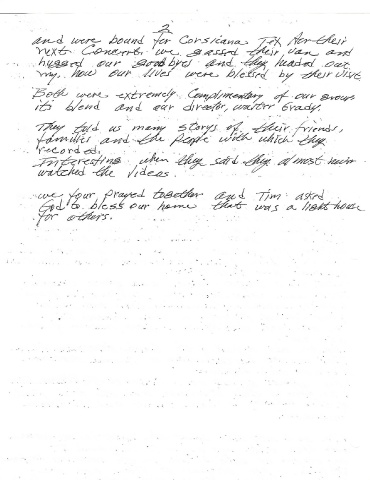 2
and were bound for Corsicana TX for their
next Concert. we gassed their van and
hugged our goodbyes and they headed out
my, how our lives were blessed by their visit
Both were extremely Complimentary of our group
its blend and our director, walter Grady.
They told us many storys of their friends,
families and the people with which they
recorded.
Interesting when they said they almost never
watched the Videos.
we four prayed together and Tim asked
God to bless our home that was a light house
for others.